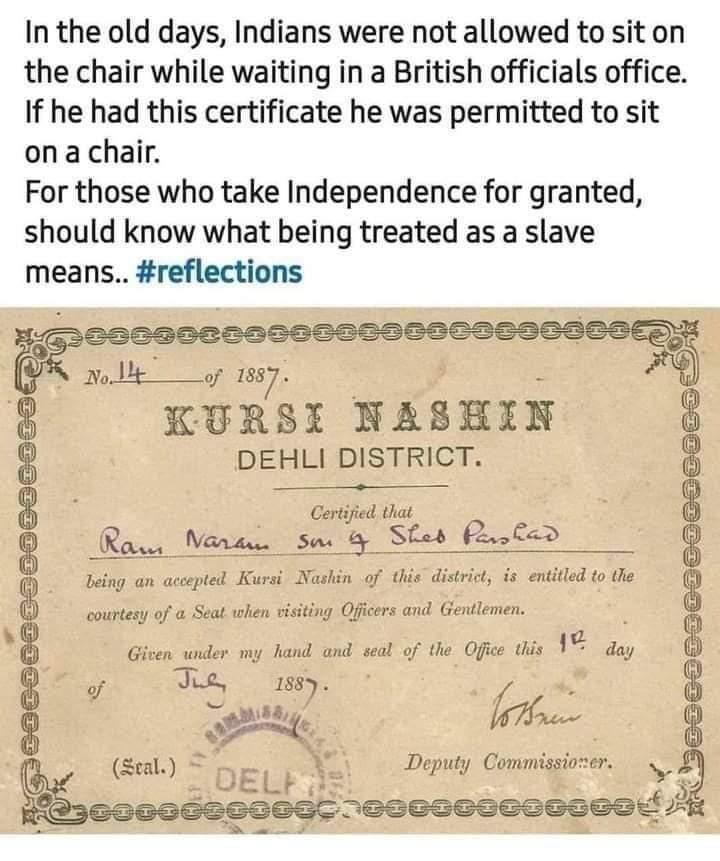 In the old days, Indians were not allowed to sit on
the chair while waiting in a British officials office.
If he had this certificate he was permitted to sit
on a chair.
For those who take Independence for granted,
should know what being treated as a slave
means.. #reflections
No. 14 of 1887.
KURSI NASHIN
DEHLI DISTRICT.
Certified that
Ram Narain son of Sheo Parshad
being an accepted Kursi Nashin of this district, is entitled to the
courtesy of a Seat when visiting Officers and Gentlemen.
Given under my hand and seal of the Office this 1st day
of July 1887.
(Seal.)
DELH
Deputy Commissioner.